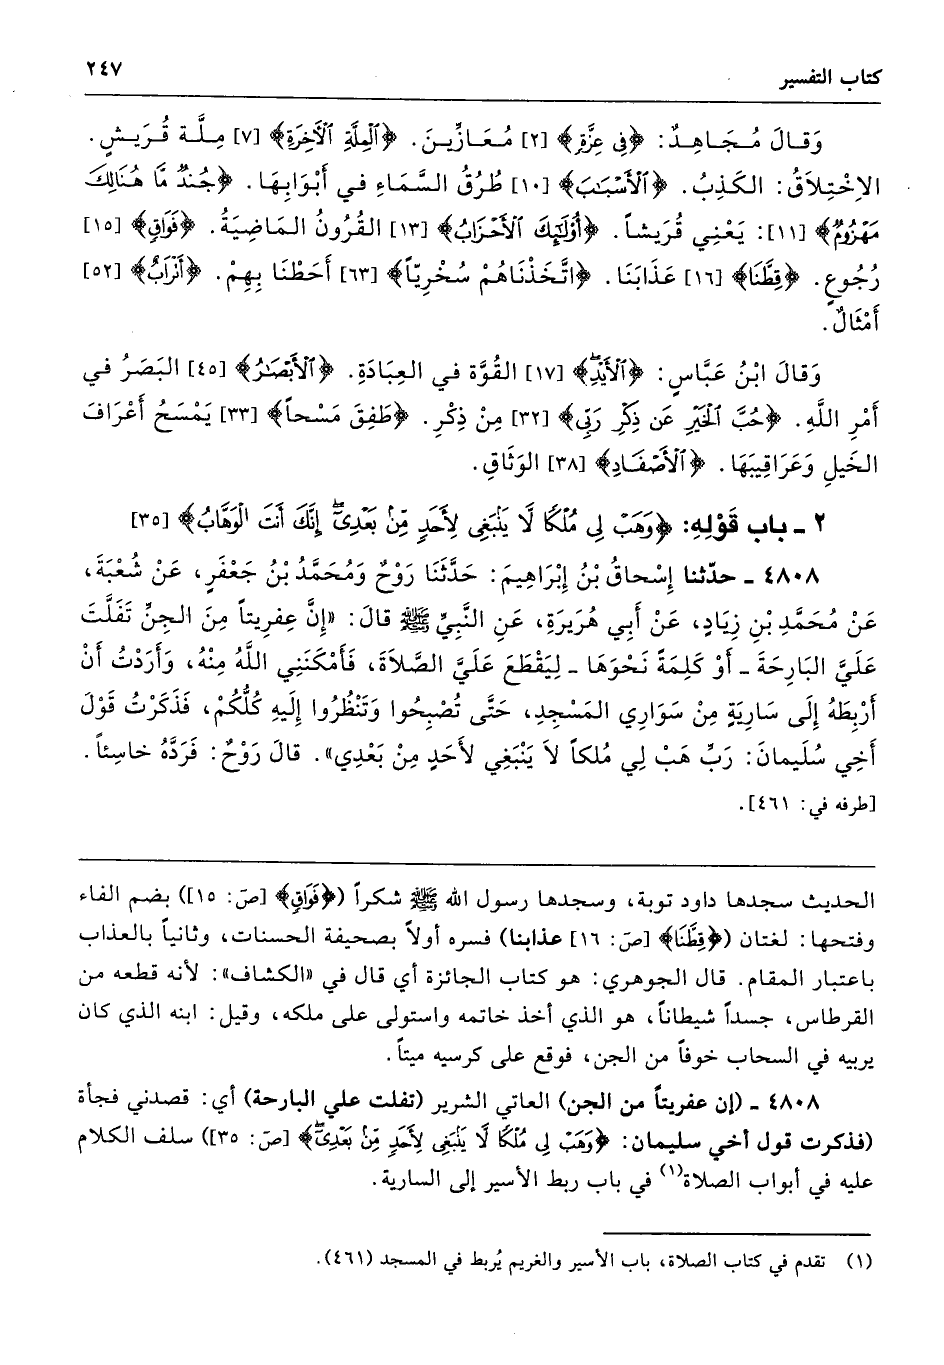 كتاب التفسير
٢٤٧
وَقَالَ مُجَاهِدٌ: ﴿فِي عِزَّةٍ﴾ [٢] مُعَازِّينَ. ﴿ٱلْمِلَّةِ ٱلْآخِرَةِ﴾ [٧] مِلَّة قُرَيشٍ.
الاِخْتِلاَقُ: الكَذِبُ. ﴿ٱلْأَسْبَـٰبَ﴾ [١٠] طُرُقُ السَّمَاءِ في أَبْوَابِهَا. ﴿جُندٌ مَّا هُنَالِكَ
مَهْزُومٌ﴾ [١١]: يَعْنِي قُرَيشاً. ﴿أُوْلَـٰٓئِكَ ٱلْأَحْزَابُ﴾ [١٣] القُرُونُ المَاضِيَةُ. ﴿فَوَاقٍ﴾ [١٥]
رُجُوعٍ. ﴿قِطَّنَا﴾ [١٦] عَذَابَنَا. ﴿اتَّخَذْنَاهُمْ سُخْرِيّاً﴾ [٦٣] أَحَطْنَا بِهِمْ. ﴿أَتْرَابٌ﴾ [٥٢]
أَمْثَالٌ.
وَقَالَ ابْنُ عَبَّاسٍ: ﴿ٱلْأَيْدِۖ﴾ [١٧] القُوَّة في العِبَادَةِ. ﴿ٱلْأَبْصَـٰرُ﴾ [٤٥] البَصَرُ في
أَمْرِ اللَّهِ. ﴿حُبَّ ٱلْخَيْرِ عَن ذِكْرِ رَبِّى﴾ [٣٢] مِنْ ذِكْرِ. ﴿طَفِقَ مَسْحاً﴾ [٣٣] يَمْسَحُ أَعْرَافَ
الخَيلِ وَعَرَاقِيبَهَا. ﴿ٱلْأَصْفَـادِ﴾ [٣٨] الوَثَاقِ.
٢ - باب قَوْلِهِ: ﴿وَهَبْ لِى مُلْكًا لَّا يَنۢبَغِى لِأَحَدٍ مِّنۢ بَعْدِىٓۖ إِنَّكَ أَنتَ الْوَهَّابُ﴾ [٣٥]
٤٨٠٨ - حدّثنا إِسْحاقُ بْنُ إِبْرَاهِيمَ: حَدَّثَنَا رَوْحٌ وَمُحَمَّدُ بْنُ جَعْفَرٍ، عَنْ شُعْبَةَ،
عَنْ مُحَمَّدِ بْنِ زِيَادٍ، عَنْ أَبِي هُرَيرَةَ، عَنِ النَّبِيِّ ﷺ قالَ: «إِنَّ عِفرِيتاً مِنَ الجِنِّ تَفَلَّتَ
عَلَيَّ البَارِحَةَ - أَوْ كَلِمَةً نَحْوَهَا - لِيَقْطَعَ عَلَيَّ الصَّلاَةَ، فَأَمْكَنَنِي اللَّهُ مِنْهُ، وَأَرَدْتُ أَنْ
أَرْبِطَهُ إِلَى سَارِيَةٍ مِنْ سَوَارِي المَسْجِدِ، حَتَّى تُصْبِحُوا وَتَنْظُرُوا إِلَيهِ كُلُّكُمْ، فَذَكَرْتُ قَوْلَ
أَخِي سُلَيمانَ: رَبِّ هَبْ لِي مُلكاً لاَ يَنْبَغِي لأَحَدٍ مِنْ بَعْدِي». قالَ رَوْحٌ: فَرَدَّهُ خاسِئاً.
[طرفه في: ٤٦١].
الحديث سجدها داود توبة، وسجدها رسول الله ﷺ شكراً (﴿فَوَاقٍ﴾ [صَ: ١٥]) بضم الفاء
وفتحها: لغتان (﴿قِطَّنَا﴾ [صَ: ١٦] عذابنا) فسره أولاً بصحيفة الحسنات، وثانياً بالعذاب
باعتبار المقام. قال الجوهري: هو كتاب الجائزة أي قال في «الكشاف»: لأنه قطعه من
القرطاس، جسداً شيطاناً، هو الذي أخذ خاتمه واستولى على ملكه، وقيل: ابنه الذي كان
يربيه في السحاب خوفاً من الجن، فوقع على كرسيه ميتاً.
٤٨٠٨ - (إن عفريتاً من الجن) العاتي الشرير (تفلت علي البارحة) أي: قصدني فجأة
(فذكرت قول أخي سليمان: ﴿وَهَبْ لِى مُلْكًا لَّا يَنۢبَغِى لِأَحَدٍ مِّنۢ بَعْدِىٓۖ﴾ [صَ: ٣٥]) سلف الكلام
عليه في أبواب الصلاة(١) في باب ربط الأسير إلى السارية.
(١) تقدم في كتاب الصلاة، باب الأسير والغريم يُربط في المسجد (٤٦١).